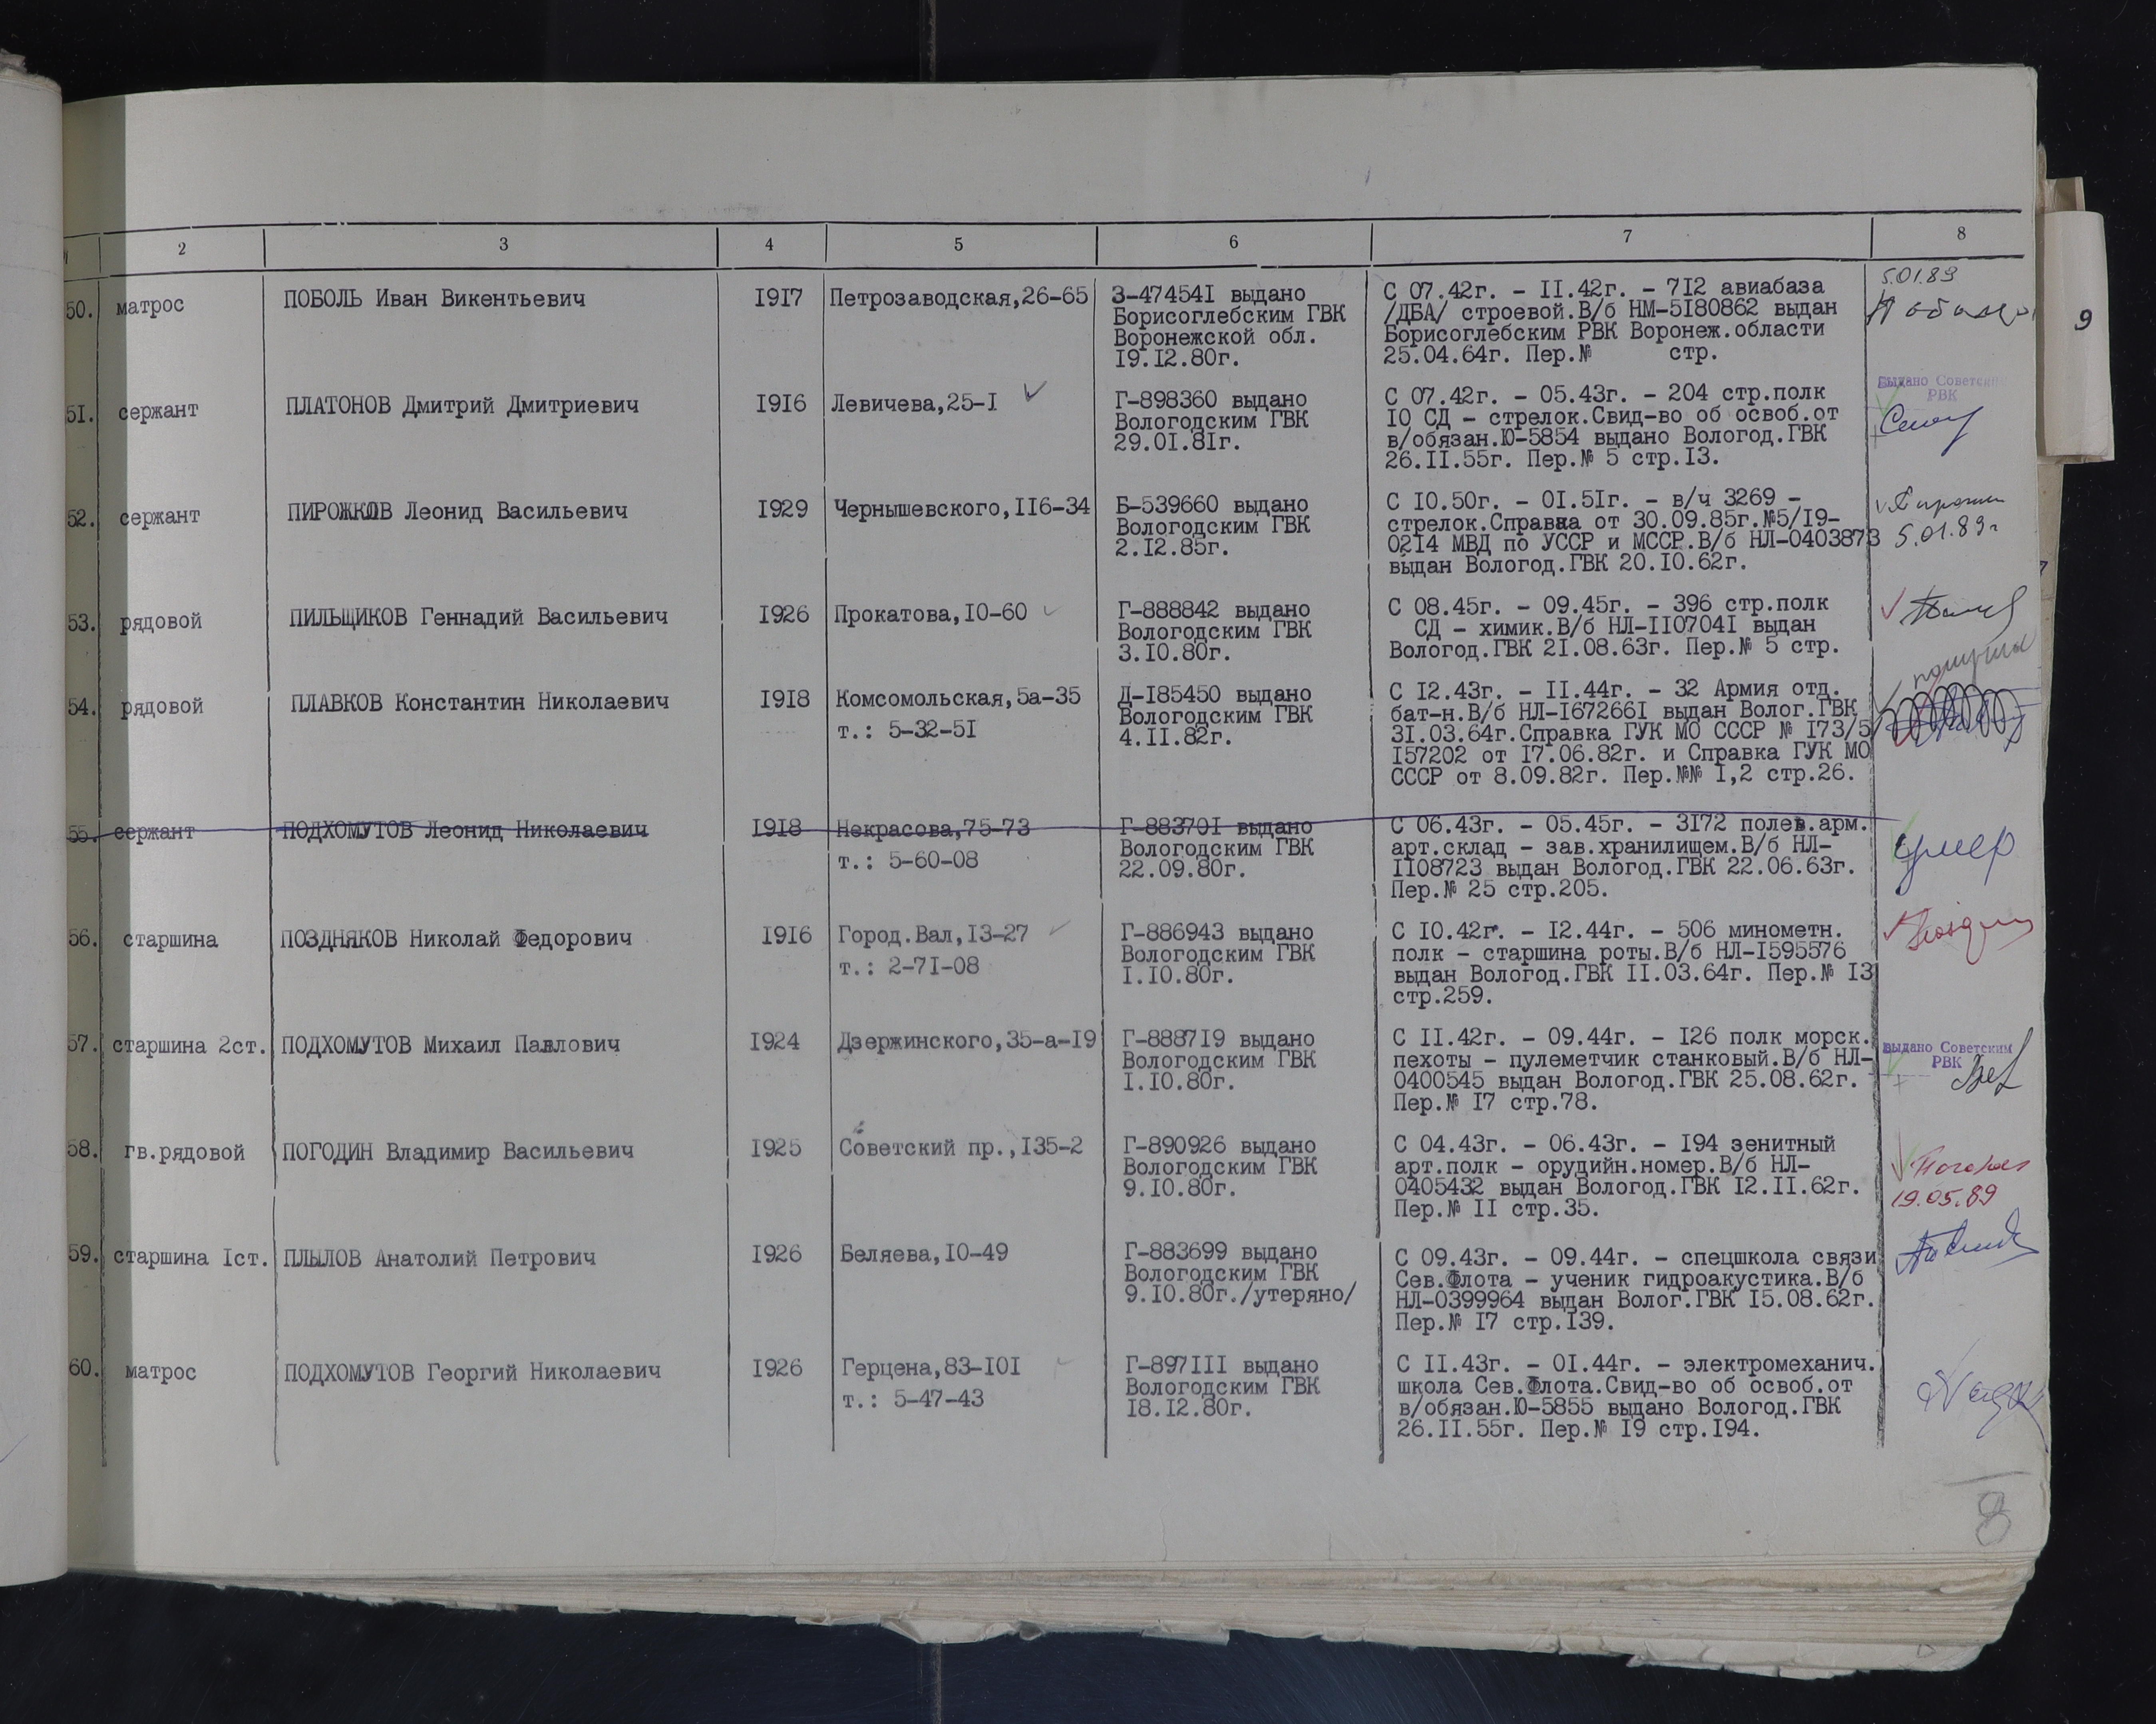 2 3 4 5 6 7 8
50. матрос ПОБОЛЬ Иван Викентьевич 1917 Петрозаводская,26-65 З-474541 выдано С 07.42г. - 11.42г. - 712 авиабаза 5.01.89
Борисоглебским ГВК /ДБА/ строевой.В/б НМ-5180862 выдан
Воронежской обл. Борисоглебским РВК Воронеж.области
19.12.80г. 25.04.64г. Пер.№ стр.
9
51. сержант ПЛАТОНОВ Дмитрий Дмитриевич 1916 Левичева,25-1 Г-898360 выдано С 07.42г. - 05.43г. - 204 стр.полк Выдано Советским
Вологодским ГВК 10 СД - стрелок.Свид-во об освоб.от РВК
29.01.81г. в/обязан.Ю-5854 выдано Вологод.ГВК
26.11.55г. Пер.№ 5 стр.13.
52. сержант ПИРОЖКОВ Леонид Васильевич 1929 Чернышевского,116-34 Б-539660 выдано С 10.50г. - 01.51г. - в/ч 3269 -
Вологодским ГВК стрелок.Справка от 30.09.85г.№5/19-
2.12.85г. 0214 МВД по УССР и МССР.В/б НЛ-0403873 5.01.89г
выдан Вологод.ГВК 20.10.62г.
53. рядовой ПИЛЬЩИКОВ Геннадий Васильевич 1926 Прокатова,10-60 Г-888842 выдано С 08.45г. - 09.45г. - 396 стр.полк
Вологодским ГВК СД - химик.В/б НЛ-1107041 выдан
3.10.80г. Вологод.ГВК 21.08.63г. Пер.№ 5 стр.
54. рядовой ПЛАВКОВ Константин Николаевич 1918 Комсомольская,5а-35 Д-185450 выдано С 12.43г. - 11.44г. - 32 Армия отд.
т.: 5-32-51 Вологодским ГВК бат-н.В/б НЛ-1672661 выдан Волог.ГВК
4.11.82г. 31.03.64г.Справка ГУК МО СССР № 173/5/
157202 от 17.06.82г. и Справка ГУК МО
СССР от 8.09.82г. Пер.№№ 1,2 стр.26.
55. сержант ПОДХОМУТОВ Леонид Николаевич 1918 Некрасова,75-73 Г-883701 выдано С 06.43г. - 05.45г. - 3172 полев.арм. умер
т.: 5-60-08 Вологодским ГВК арт.склад - зав.хранилищем.В/б НЛ-
22.09.80г. 1108723 выдан Вологод.ГВК 22.06.63г.
Пер.№ 25 стр.205.
56. старшина ПОЗДНЯКОВ Николай Федорович 1916 Город.Вал,13-27 Г-886943 выдано С 10.42г. - 12.44г. - 506 минометн.
т.: 2-71-08 Вологодским ГВК полк - старшина роты.В/б НЛ-1595576
1.10.80г. выдан Вологод.ГВК 11.03.64г. Пер.№ 13
стр.259.
57. старшина 2ст. ПОДХОМУТОВ Михаил Павлович 1924 Дзержинского,35-а-19 Г-888719 выдано С 11.42г. - 09.44г. - 126 полк морск. Выдано Советским
Вологодским ГВК пехоты - пулеметчик станковый.В/б НЛ- РВК
1.10.80г. 0400545 выдан Вологод.ГВК 25.08.62г.
Пер.№ 17 стр.78.
58. гв.рядовой ПОГОДИН Владимир Васильевич 1925 Советский пр.,135-2 Г-890926 выдано С 04.43г. - 06.43г. - 194 зенитный
Вологодским ГВК арт.полк - орудийн.номер.В/б НЛ-
9.10.80г. 0405432 выдан Вологод.ГВК 12.11.62г. 19.05.89
Пер.№ 11 стр.35.
59. старшина 1ст. ПЛЫЛОВ Анатолий Петрович 1926 Беляева,10-49 Г-883699 выдано С 09.43г. - 09.44г. - спецшкола связи
Вологодским ГВК Сев.Флота - ученик гидроакустика.В/б
9.10.80г./утеряно/ НЛ-0399964 выдан Волог.ГВК 15.08.62г.
Пер.№ 17 стр.139.
60. матрос ПОДХОМУТОВ Георгий Николаевич 1926 Герцена,83-101 Г-897111 выдано С 11.43г. - 01.44г. - электромеханич.
т.: 5-47-43 Вологодским ГВК школа Сев.Флота.Свид-во об освоб.от
18.12.80г. в/обязан.Ю-5855 выдано Вологод.ГВК
26.11.55г. Пер.№ 19 стр.194.
8